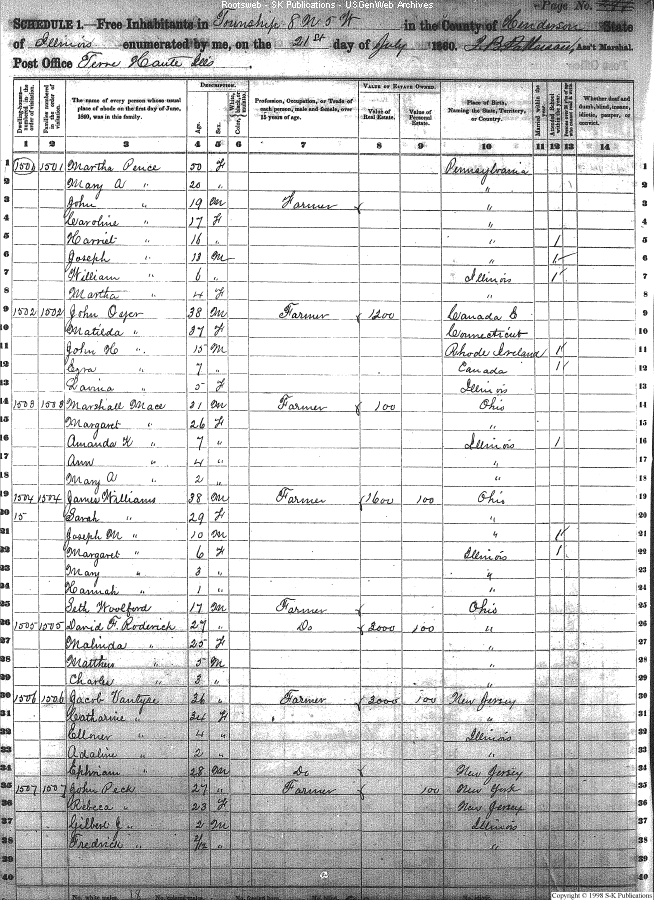 Rootsweb - SK Publications - USGenWeb Archives
Page No.
SCHEDULE 1.—Free Inhabitants in Township 8 N 5 W in the County of Henderson State
of Illinois enumerated by me, on the 21st day of July 1860. Ass't Marshal.
Post Office Terre Haute Ills
Dwelling-houses numbered in the order of visitation.
Families numbered in the order of visitation.
The name of every person whose usual place of abode on the first day of June, 1860, was in this family.
DESCRIPTION.
Age.
Sex.
Color, White, black, or mulatto.
Profession, Occupation, or Trade of each person, male and female, over 15 years of age.
VALUE OF ESTATE OWNED.
Value of Real Estate.
Value of Personal Estate.
Place of Birth, Naming the State, Territory, or Country.
Married within the year.
Attended School within the year.
Whether deaf and dumb, blind, insane, idiotic, pauper, or convict.
1 2 3 4 5 6 7 8 9 10 11 12 13 14
1 1500 1501 Martha Pence 50 F Pennsylvania 1
2 Mary A " 20 " " 2
3 John " 19 M Farmer " 3
4 Caroline " 17 F " 4
5 Harriet " 16 " " 1 5
6 Joseph " 13 M " 1 6
7 William " 6 " Illinois 1 7
8 Martha " 4 F " 8
9 1502 1502 John Oyer 38 M Farmer 1200 Canada E 9
10 Matilda " 37 F Connecticut 10
11 John H " 15 M Rhode Ireland 1 11
12 Ezra " 7 " Canada 1 12
13 Lavina " 5 F Illinois 13
14 1503 1503 Marshall Mace 31 M Farmer 100 Ohio 14
15 Margaret " 26 F " 15
16 Amanda K " 7 " Illinois 1 16
17 Ann " 4 " " 17
18 Mary A " 2 " " 18
19 1504 1504 James Williams 38 M Farmer 1600 100 Ohio 19
20 15 Sarah " 29 F " 20
21 Joseph M " 10 M " 1 21
22 Margaret " 6 F Illinois 1 22
23 Mary " 3 " " 23
24 Hannah " 1 " " 24
25 Seth Woolford 17 M Farmer Ohio 25
26 1505 1505 David F. Roderick 27 " Do 2000 100 " 26
27 Malinda " 25 F " 27
28 Matthew " 5 M " 28
29 Charles " 3 " " 29
30 1506 1506 Jacob Vantyle 36 " Farmer 3000 100 New Jersey 30
31 Catharine " 34 F " 31
32 Ellner " 4 " Illinois 32
33 Adaline " 2 " " 33
34 Ephriam " 28 M Do New Jersey 34
35 1507 1507 John Peck 27 " Farmer 100 New York 35
36 Rebeca " 23 F New Jersey 36
37 Gilbert J " 2 M Illinois 37
38 Fredrick " 2/12 " " 38
39 39
40 40
No. white males, 18
Copyright © 1998 S-K Publications